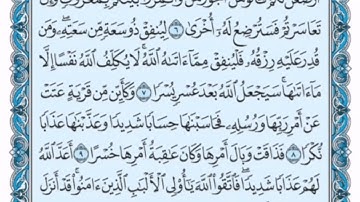 تَعَاسَرْتُمْ فَسَتُرْضِعُ لَهُۥٓ أُخْرَىٰ ٦ لِيُنفِقْ ذُو سَعَةٍ مِّن سَعَتِهِۦ ۖ وَمَن
قُدِرَ عَلَيْهِ رِزْقُهُۥ فَلْيُنفِقْ مِمَّآ ءَاتَىٰهُ ٱللَّهُ ۚ لَا يُكَلِّفُ ٱللَّهُ نَفْسًا إِلَّا
مَآ ءَاتَىٰهَا ۚ سَيَجْعَلُ ٱللَّهُ بَعْدَ عُسْرٍ يُسْرًا ٧ وَكَأَيِّن مِّن قَرْيَةٍ عَتَتْ
عَنْ أَمْرِ رَبِّهَا وَرُسُلِهِۦ فَحَاسَبْنَٰهَا حِسَابًا شَدِيدًا وَعَذَّبْنَٰهَا عَذَابًا
نُّكْرًا ٨ فَذَاقَتْ وَبَالَ أَمْرِهَا وَكَانَ عَٰقِبَةُ أَمْرِهَا خُسْرًا ٩ أَعَدَّ ٱللَّهُ
لَهُمْ عَذَابًا شَدِيدًا ۖ فَٱتَّقُوا۟ ٱللَّهَ يَٰٓأُو۟لِى ٱلْأَلْبَٰبِ ٱلَّذِينَ ءَامَنُوا۟ ۚ قَدْ أَنزَلَ